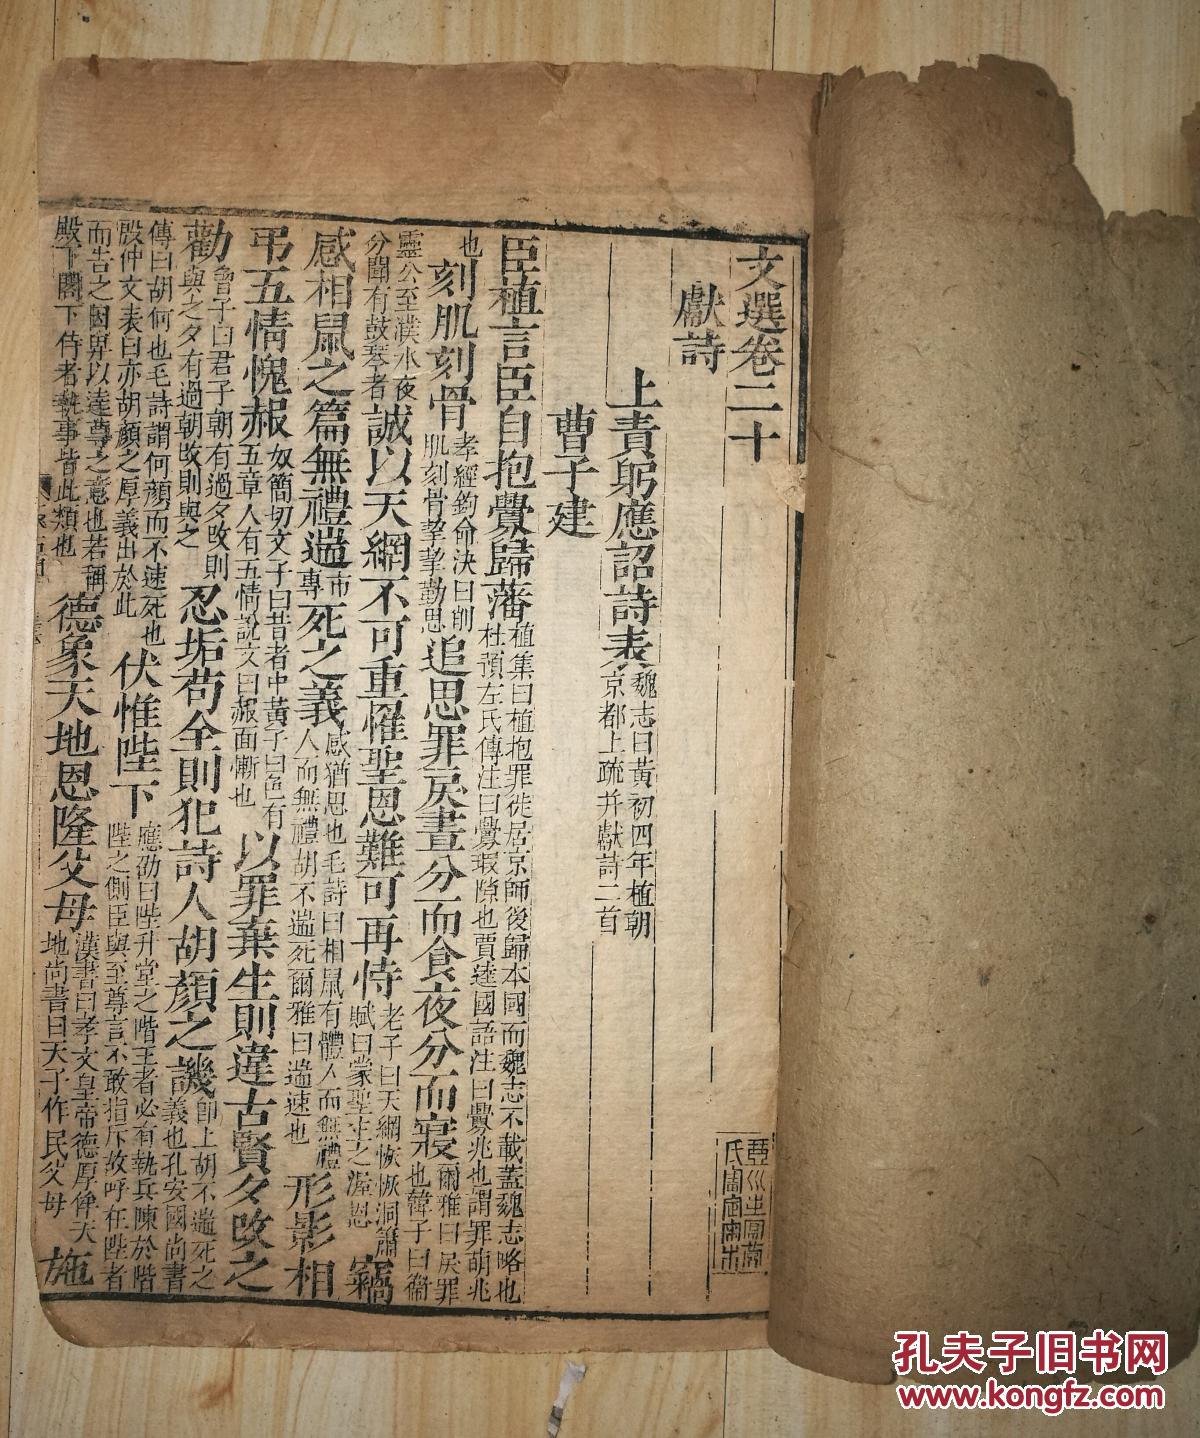 文選卷二十
獻詩
上責躬應詔詩表魏志曰黃初四年植朝京都上疏并獻詩二首
曹子建
臣植言臣自抱釁歸藩植集曰植抱罪徙居京師後歸本國而魏志不載蓋魏志略也杜預左氏傳注曰釁瑕隙也賈逵國語注曰釁兆也謂罪萌兆
也刻肌刻骨孝經鉤命決曰削肌刻骨挈挈勤思追思罪戾晝分而食夜分而寢爾雅曰戾罪也韓子曰衞
靈公至濮水夜分聞有鼓琴者誠以天網不可重罹聖恩難可再恃老子曰天網恢恢洞簫賦曰蒙聖主之渥恩竊
感相鼠之篇無禮遄市專死之義感猶思也毛詩曰相鼠有體人而無禮人而無禮胡不遄死爾雅曰遄速也形影相
弔五情愧赧奴簡切文子曰昔者中黃子曰色有五章人有五情說文曰赧面慚也以罪棄生則違古賢夕改之
勸曾子曰君子朝有過夕改則與之夕有過朝改則與之忍垢苟全則犯詩人胡顏之譏即上胡不遄死之義也孔安國尚書
傳曰胡何也毛詩謂何顏而不速死也殷仲文表曰亦胡顏之厚義出於此伏惟陛下應劭曰陛升堂之階王者必有執兵陳於階陛之側臣與至尊言不敢指斥故呼在陛者
而告之因卑以達尊之意也若稱殿下閣下侍者執事皆此類也德象天地恩隆父母漢書曰孝文皇帝德厚侔天地尚書曰天子作民父母施
孔夫子旧书网
www.kongfz.com